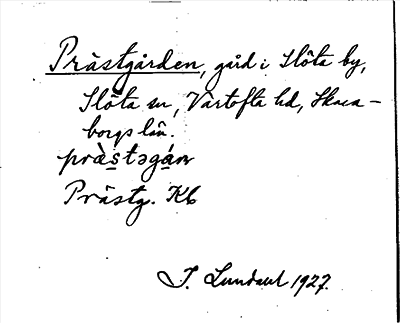 Prästgården, gård i Slöta by,
Slöta sn, Vartofta hd, Skara-
borgs län.
prä̀stəgár
Prästg. Kb
J. Lundahl 1927.